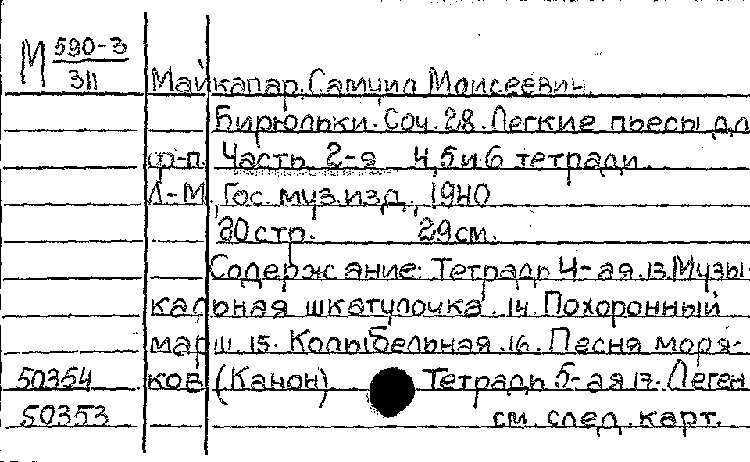 М 590-3
311
Майкапар, Самуил Моисеевич.
Бирюльки. Соч. 28. Легкие пьесы дл
ф-п. Часть 2-я 4, 5 и 6 тетради.
Л-М, Гос. муз. изд., 1940
30 стр. 29 см.
Содержание: Тетрадь 4-ая. 13. Музы-
кальная шкатулочка. 14. Похоронный
марш. 15. Колыбельная. 16. Песня моря-
50354 ков (Канон) Тетрадь 5-ая 17. Леген
50353 см. след. карт.